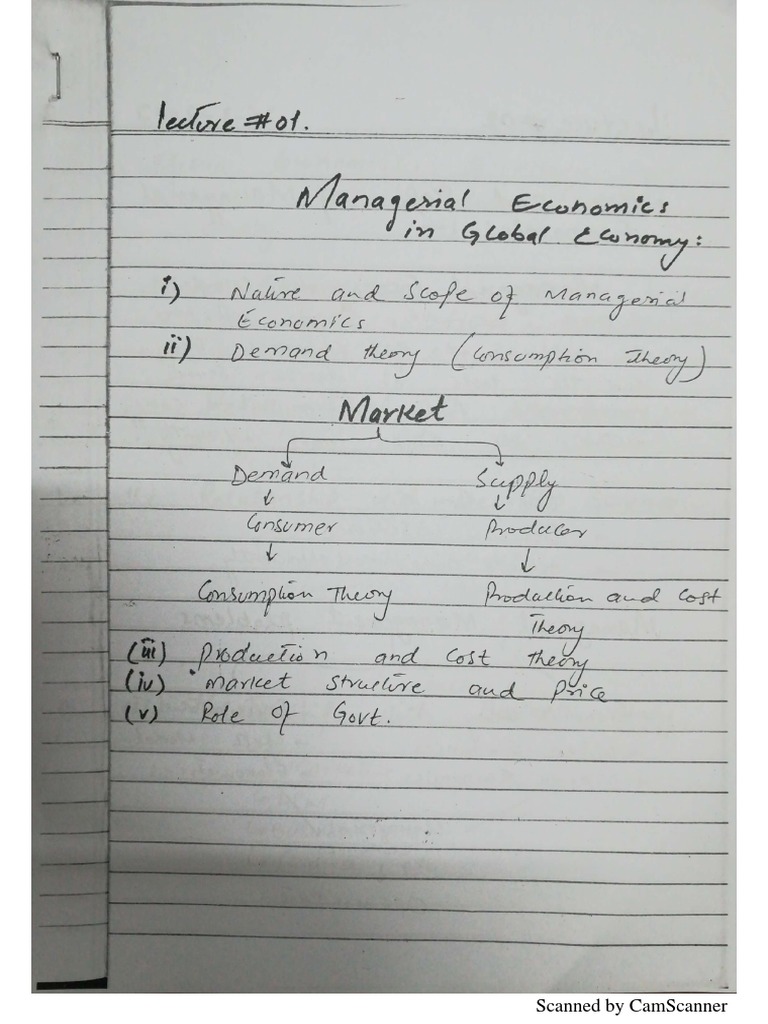 lecture #01.
Managerial Economics
in Global Economy:
i) Nature and Scope of Managerial
Economics
ii) Demand theory (Consumption Theory)
Market
Demand Supply
↓ ↓
Consumer Producer
↓ ↓
Consumption Theory Production and Cost
Theory
(iii) Production and Cost theory
(iv) market structure and Price
(v) Role of Govt.
Scanned by CamScanner